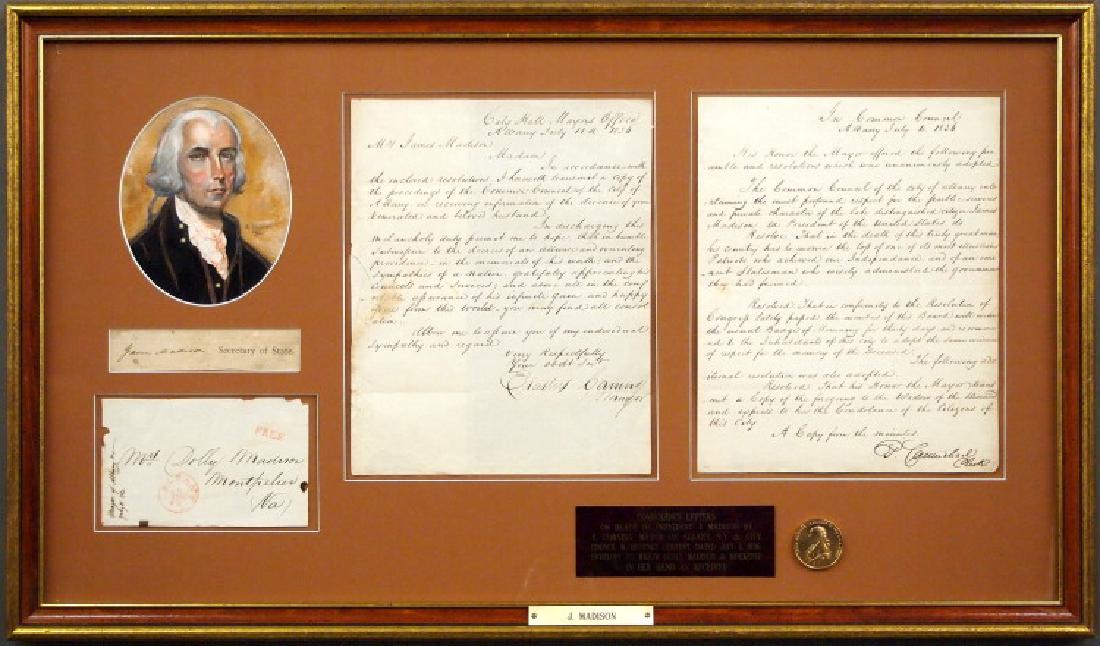 James Madison Secretary of State.
FREE
Mrs. Dolly Madison
Montpelier
(Va)
City Hall Mayors Office
Albany July 1836
Mrs James Madison
Madam
In accordance with
the enclosed resolution, I herewith transmit a copy of
the proceedings of the Common Council of the City of
Albany on receiving information of the decease of your
venerated and beloved husband.
In discharging this
melancholy duty permit me to hope that in humble
submission to the decrees of an allwise and
providence in the memorials of his worth; and the
sympathies of a Nation, gratefully appreciating his
Councils and Services; and above all in the
of the assurance of his infinite Gain and happy
from this world you may find all
ation.
Allow me to assure you of my individual
sympathy and regard
Very Respectfully
Your obdt Servt
Mayor
In Common Council
Albany July 1836
His Honor the Mayor offered the following pre
amble and resolutions which was unanimously adopted
The Common Council of the city of Albany enter
taining the most profound respect for the public services
and private character of the late distinguished citizen James
Madison Ex President of the United States do
Resolve That in the death of this truly great man
his Country has to mourn the loss of one of its most illustrious
Patriots who achieved our Independence and of an emi
nent Statesman who wisely administered the government
they had formed.
Resolved That in conformity to the Resolution of
Congress lately passed the members of this Board will wear
the usual Badge of Mourning for thirty days and recommend
to the Inhabitants of this city to adopt the same
of respect for the memory of the Deceased.
The following add
itional resolution was also adopted.
Resolved That his Honor the Mayor trans
mit a Copy of the foregoing to the Widow of the Deceased
and express to her the Condolence of the Citizens of
this City
A Copy from the minutes
Clerk
CONDOLENCE LETTERS
ON DEATH OF PRESIDENT J. MADISON BY
MAYOR OF ALBANY, NY & CITY
COUNCIL
IN HER HAND AS RECEIVED
J. MADISON